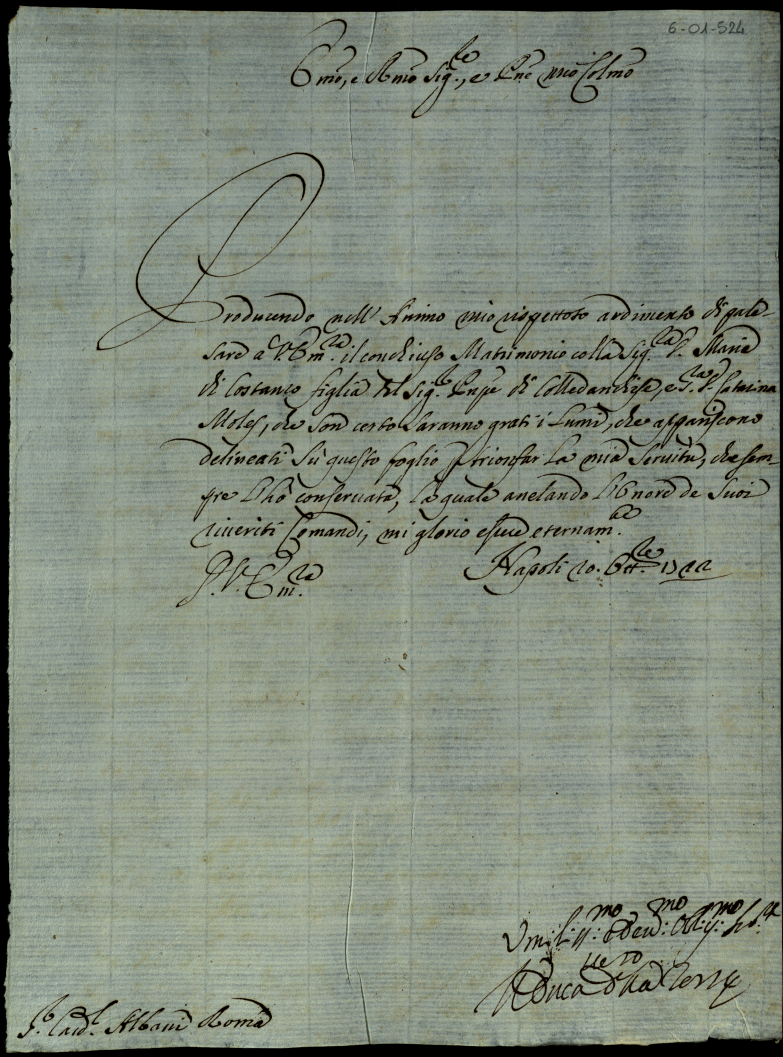 6-01-524
Emo, e Rmo Sig.re, e Pne mio Colmo
Producendo nell'Animo mio rispettoso ardimento di pale-
sare a V. Em.za il conchiuso Matrimonio colla Sig.ra D. Maria
di Costanzo figlia del Sig.r Pnpe di Colledanchise, e S.ra D. Caterina
Moles, che son certo saranno grati i Lumi, che appariscono
delineati sù questo foglio p trionfar la mia Servitù, che sem-
pre l'hò conservata, la quale anelando l'Onore de Suoi
riveriti Comandi, mi glorio essere eternam.te
D. V. Em.za
Napoli 20. Ott.re 1722
Umiliss.mo Dev.mo Obblig.mo
Il Duca
S.r Card.l Albani Roma